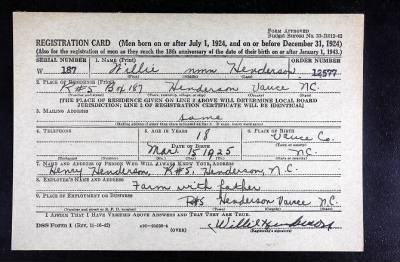 FORM APPROVED
Budget Bureau No. 33-R012-42
REGISTRATION CARD (Men born on or after July 1, 1924, and on or before December 31, 1924)
(Also for the registration of men as they reach the 18th anniversary of the date of their birth on or after January 1, 1943.)
SERIAL NUMBER 1. NAME (Print) ORDER NUMBER
W 187 Willie nmn Henderson 12577
(First) (Middle) (Last)
2. PLACE OF RESIDENCE (Print)
R#5 Box 187 Henderson Vance N.C.
(Number and street) (Town, township, village, or city) (County) (State)
[THE PLACE OF RESIDENCE GIVEN ON LINE 2 ABOVE WILL DETERMINE LOCAL BOARD
JURISDICTION; LINE 2 OF REGISTRATION CERTIFICATE WILL BE IDENTICAL]
3. MAILING ADDRESS
Same
4. TELEPHONE 5. AGE IN YEARS 6. PLACE OF BIRTH
18 Vance Co.
DATE OF BIRTH
Mar. 15 1925 N.C.
(Mo.) (Day) (Yr.)
7. NAME AND ADDRESS OF PERSON WHO WILL ALWAYS KNOW YOUR ADDRESS
Henry Henderson, R#5, Henderson, N.C.
8. EMPLOYER'S NAME AND ADDRESS
Farm with father
9. PLACE OF EMPLOYMENT OR BUSINESS
R#5 Henderson Vance N.C.
(Number and street or R. F. D. number) (Town) (County) (State)
I AFFIRM THAT I HAVE VERIFIED ABOVE ANSWERS AND THAT THEY ARE TRUE.
DSS Form 1 (Rev. 11-16-42) (OVER) Willie Henderson
(Registrant's signature)